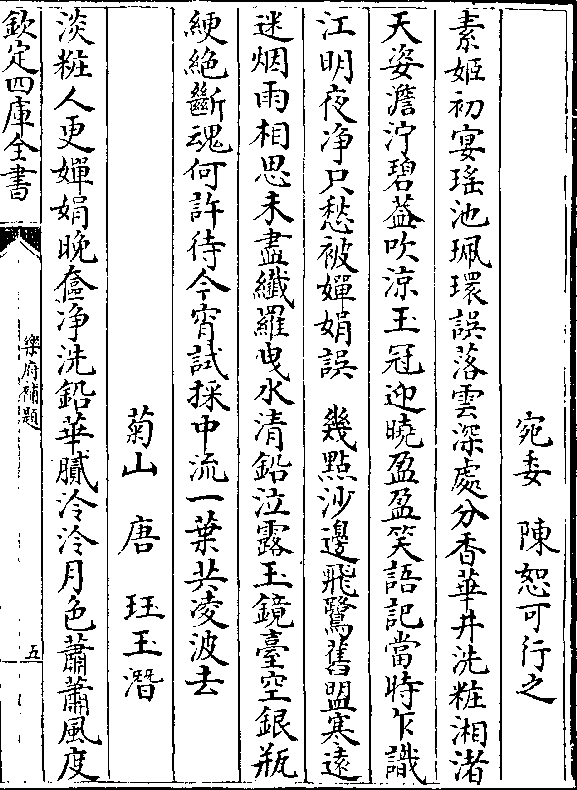 宛委　陳恕可行之
素姬初宴瑤池珮環誤落雲深處分香華井洗粧湘渚
天姿澹泞碧葢吹涼玉冠迎曉盈盈笑語記當時乍識
江明夜净只愁被嬋娟誤　幾點沙邊飛鷺舊盟寒遠
迷烟雨相思未盡纎羅曳水清鉛泣露玉鏡臺空銀瓶
綆絶斷魂何許待今宵試採中流一葉共凌波去
菊山　唐　珏玉潛
淡粧人更嬋娟晚奩净洗鉛華膩泠泠月色蕭蕭風度
欽定四庫全書
樂府補題
五